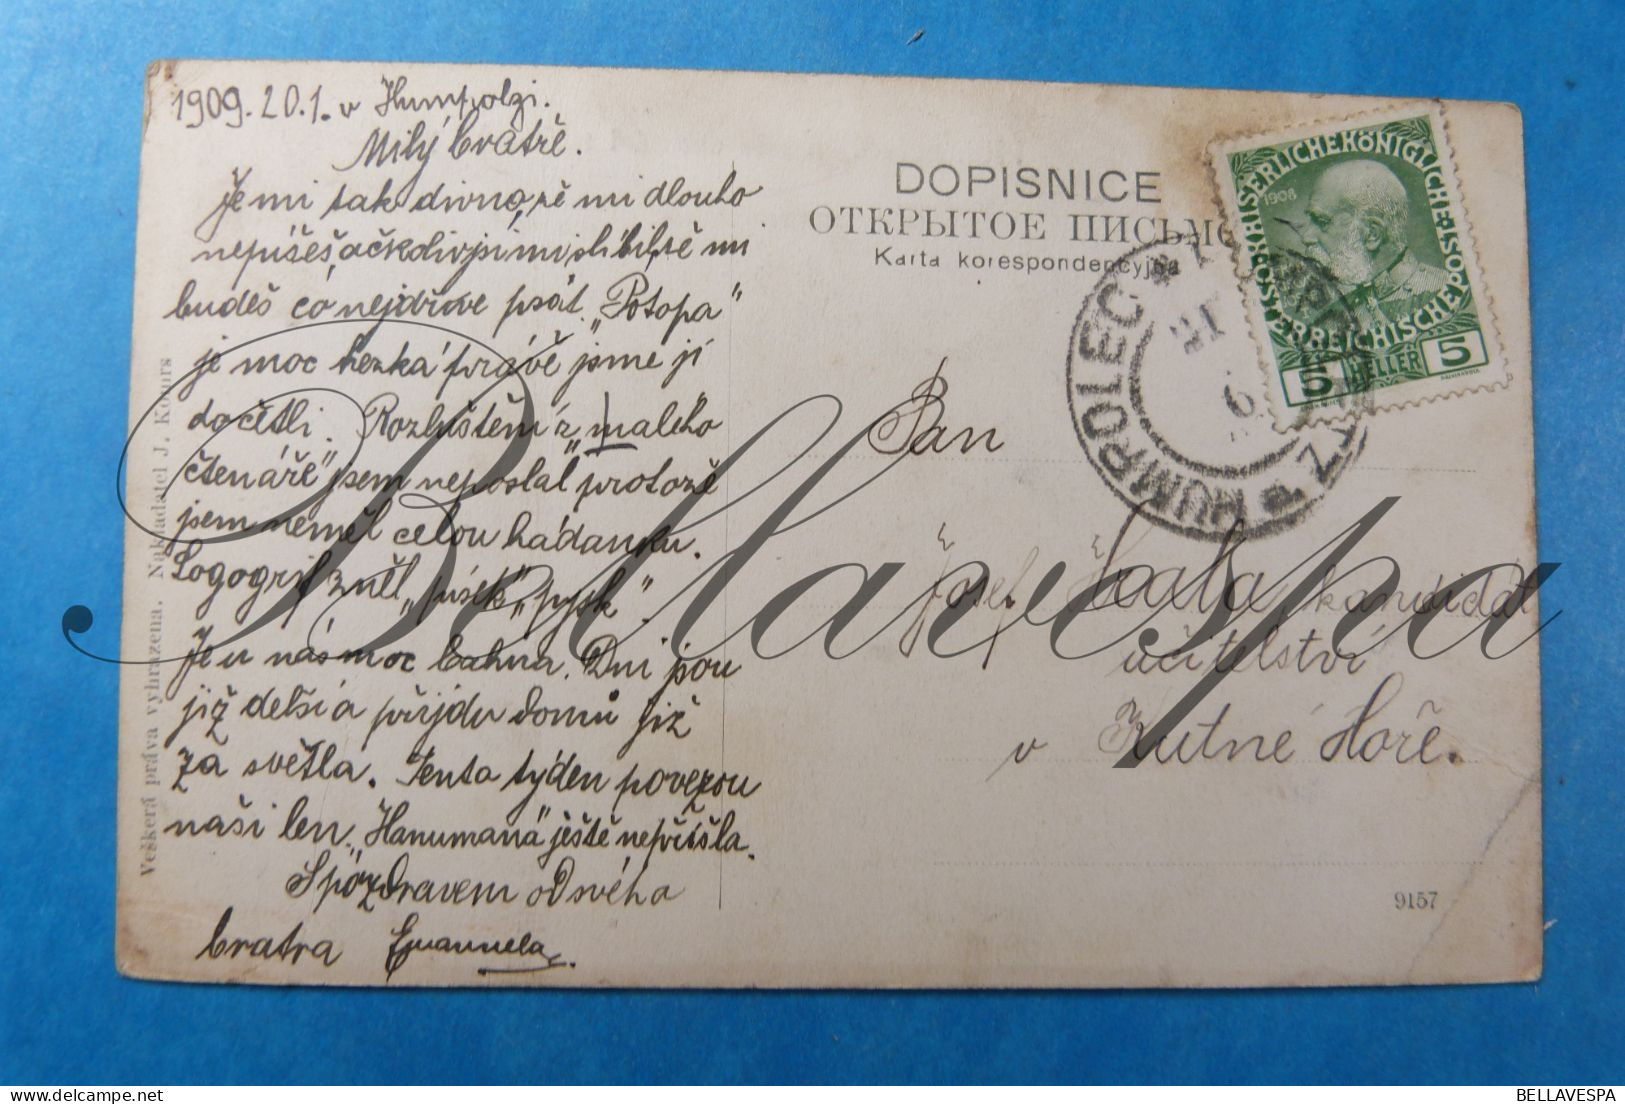 1909. 20.1. v Humpolzi.
Milý bratře.
Je mi tak divno, že mi dlouho
nepíšeš, ačkdivjsi mi slíbil, že mi
budeš co nejdříve psát. „Potopa"
je moc hezká právě jsme ji
dočetli. Rozluštění z „malého
čtenáře" jsem neposlal protože
jsem neměl celou hádanku.
Logogrif zněl „písek", „pysk".
Je u nás moc bahna. Dni jsou
již delší a přijdu domů již
za světla. Tento týden povezou
naši len. „Hanumana" ještě nepřišla.
S pozdravem od svého
bratra Emanuela.
Veškerá práva vyhrazena. Nakladatel J. Kours
DOPISNICE
ОТКРЫТОЕ ПИСЬМО
Karta korespondencyjna
KAISERLICHEKÖNIGLICHE
ÖSTERREICHISCHE POST
1908
5 HELLER 5
HUMPOLEC
HUMPOLETZ
21
Pan
Josef Hála kandidát
učitelství
v Kutné Hoře.
9157
Bellavespa
BELLAVESPA